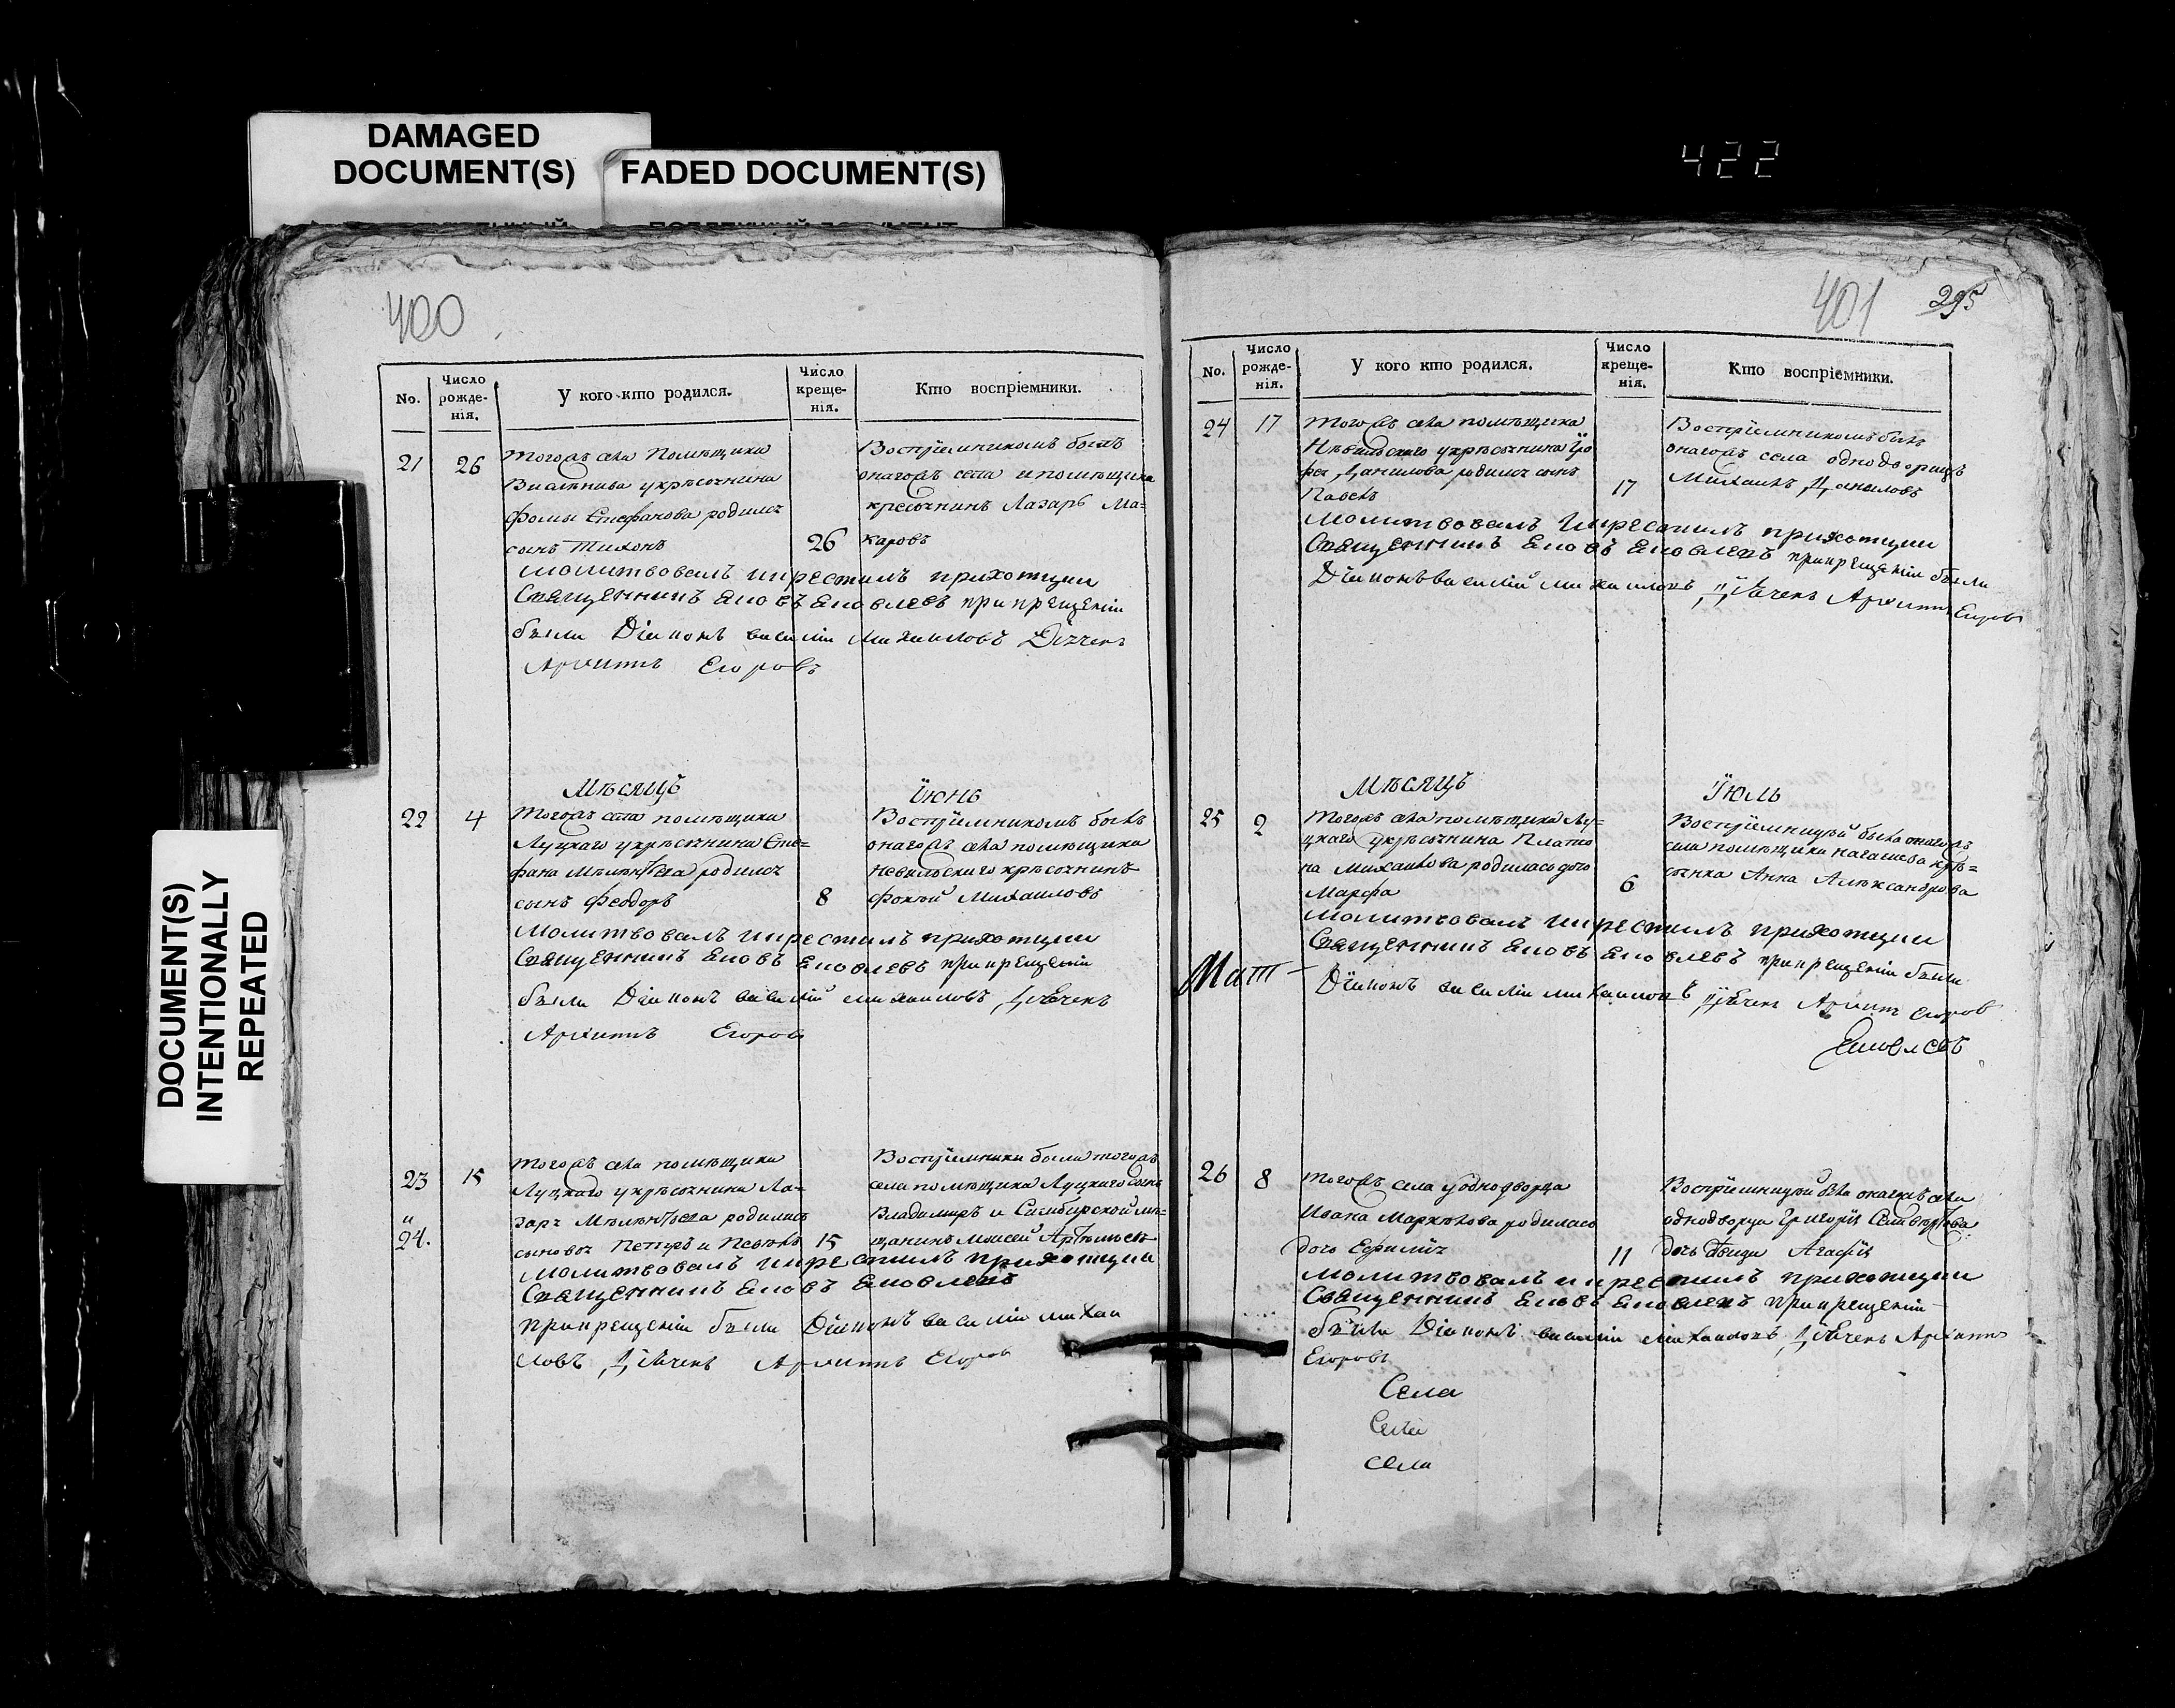 DAMAGED
DOCUMENT(S)
FADED DOCUMENT(S)
422
DOCUMENT(S)
INTENTIONALLY
REPEATED
400
No.
Число рожде-нія.
У кого кто родился.
Число креще-нія.
Кто воспріемники.
21
26
тогожъ села Помѣщика
укрѣсьянина
Фомы Стефанова родился
сынъ Тихонъ
26
Воспріемникомъ былъ
онагожъ села и помѣщика
кресьянинъ Лазарь Ма=
каровъ
Молитвовалъ икрестилъ приходцкии
Священникъ Ековъ Ековлевъ прикрещеніи
были Діиконъ василіи михаиловъ Дьячекъ
Архипъ Егоровъ
Мѣсяцъ Іюнь
22
4
Тогожъ села помѣщика
Луцкаго укрѣсьянина Сте=
фана Мѣлѣнтьева родился
сынъ Феодоръ
8
Воспріемникомъ былъ
онагожъ села помѣщика
Невельскаго крѣсьянинъ
Фокъй Михаиловъ
Молитвовалъ икрестилъ приходцкии
Священникъ Ековъ Ековлевъ прикрещеніи
были Діиконъ василій михаиловъ Дьячекъ
Архипъ Егоровъ
23
15
"
24.
тогожъ села помѣщика
Луцкаго укрѣсьянина Ла=
заря Мѣлѣнтьева родились
сыновья Петръ и Павелъ
15
Воспріемники были тогожъ
села помѣщика Луцкаго сынъ
Владимиръ и Симбирской мѣ=
щанинъ Моисей
Молитвовалъ икрестилъ приходцкии
Священникъ Ековъ Ековлевъ
прикрещеніи были Діиконъ василіи михаи
ловъ Дьячекъ Архипъ Егоров
401
295
No.
Число рожде-нія.
У кого кто родился.
Число креще-нія.
Кто воспріемники.
24
17
тогожъ села помѣщика
Нѣвельскаго укрѣсьянина
Данилова родился сынъ
Павелъ
17
Воспріемникомъ былъ
онагожъ села однодворецъ
Михаилъ Даниловъ
Молитвовалъ икрестилъ приходцкии
Священникъ Ековъ Ековлевъ прикрещеніи были
Діиконъ василій михаиловъ Дьячекъ Архипъ Егоровъ
Мѣсяцъ Іюль
25
2
Тогожъ села помѣщика Лу=
цкаго укрѣсьянина Плато
на Михаилова родилась дочь
Марфа
6
Воспріемницѣй была онагожъ
села помѣщика Нагаткева крѣ=
сьянка Анна Александрова
Молитвовалъ икрестилъ приходцкии
Священникъ Ековъ Ековлевъ прикрещеніи были
Діиконъ василіи михаиловъ Дьячекъ Архипъ Егоров
Ековлевъ
26
8
тогожъ села уоднодворца
Ивана Маркѣлова родилась
дочь Ефимія
11
Воспріемницѣй была онагожъ села
однодворца Григорія
дочь дѣвица Агафія
Молитвовалъ икрестилъ приходцкии
Священникъ Ековъ Ековлевъ прикрещеніи
были Діиконъ василіи михаиловъ Дьячекъ Архипъ
Егоровъ
Села
Села
села